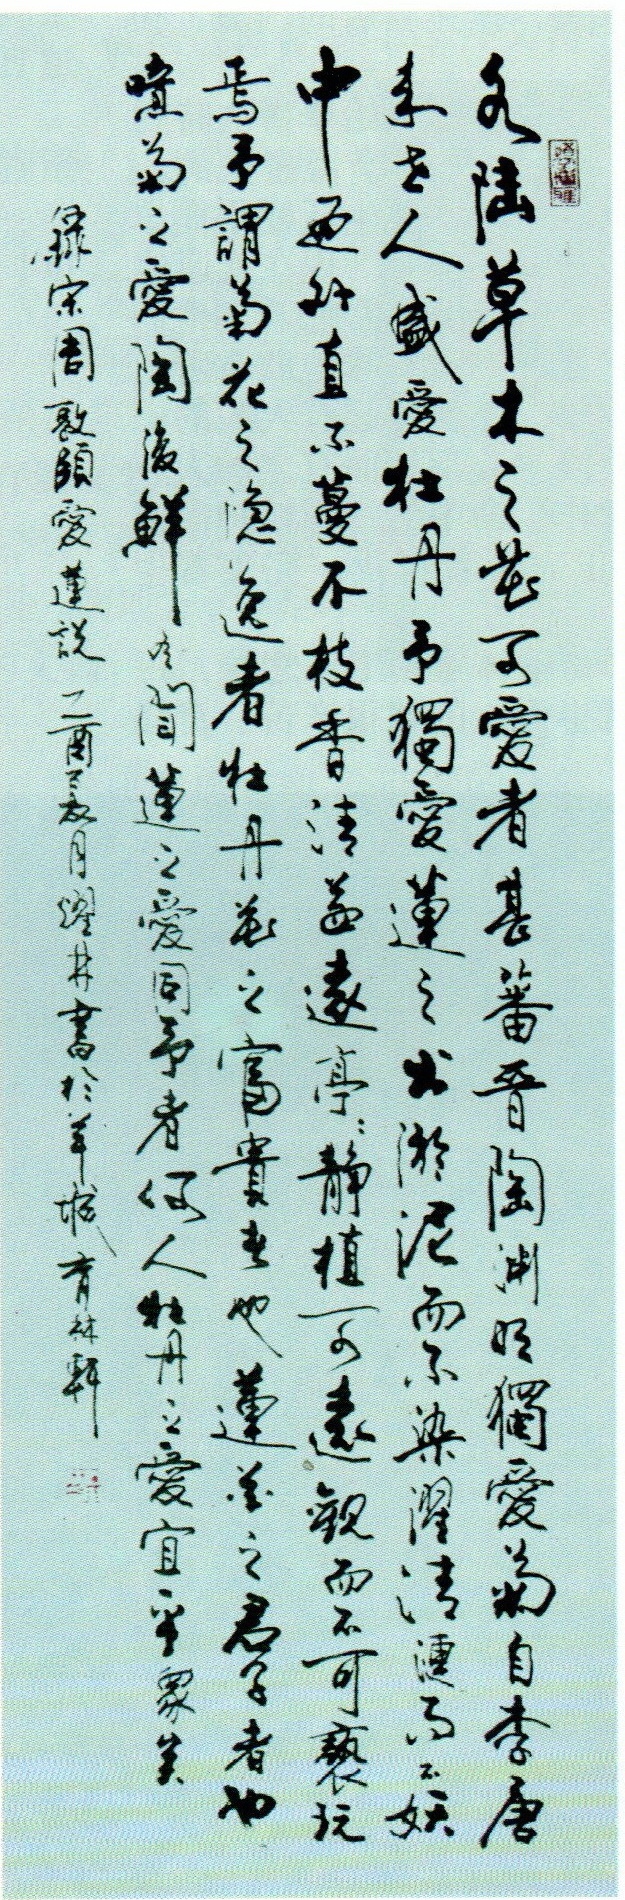 水陸草木之花可愛者甚蕃晉陶淵明獨愛菊自李唐
来世人盛愛牡丹予獨愛蓮之出淤泥而不染濯清漣而不妖
中通外直不蔓不枝香清益遠亭〻静植可遠觀而不可褻玩
焉予謂菊花之隐逸者牡丹花之富貴者也蓮花之君子者也
噫菊之愛陶後鮮有聞蓮之愛同予者何人牡丹之愛宜乎衆矣
錄宋周敦頤愛蓮説 乙酉月耀林書於羊城育林軒